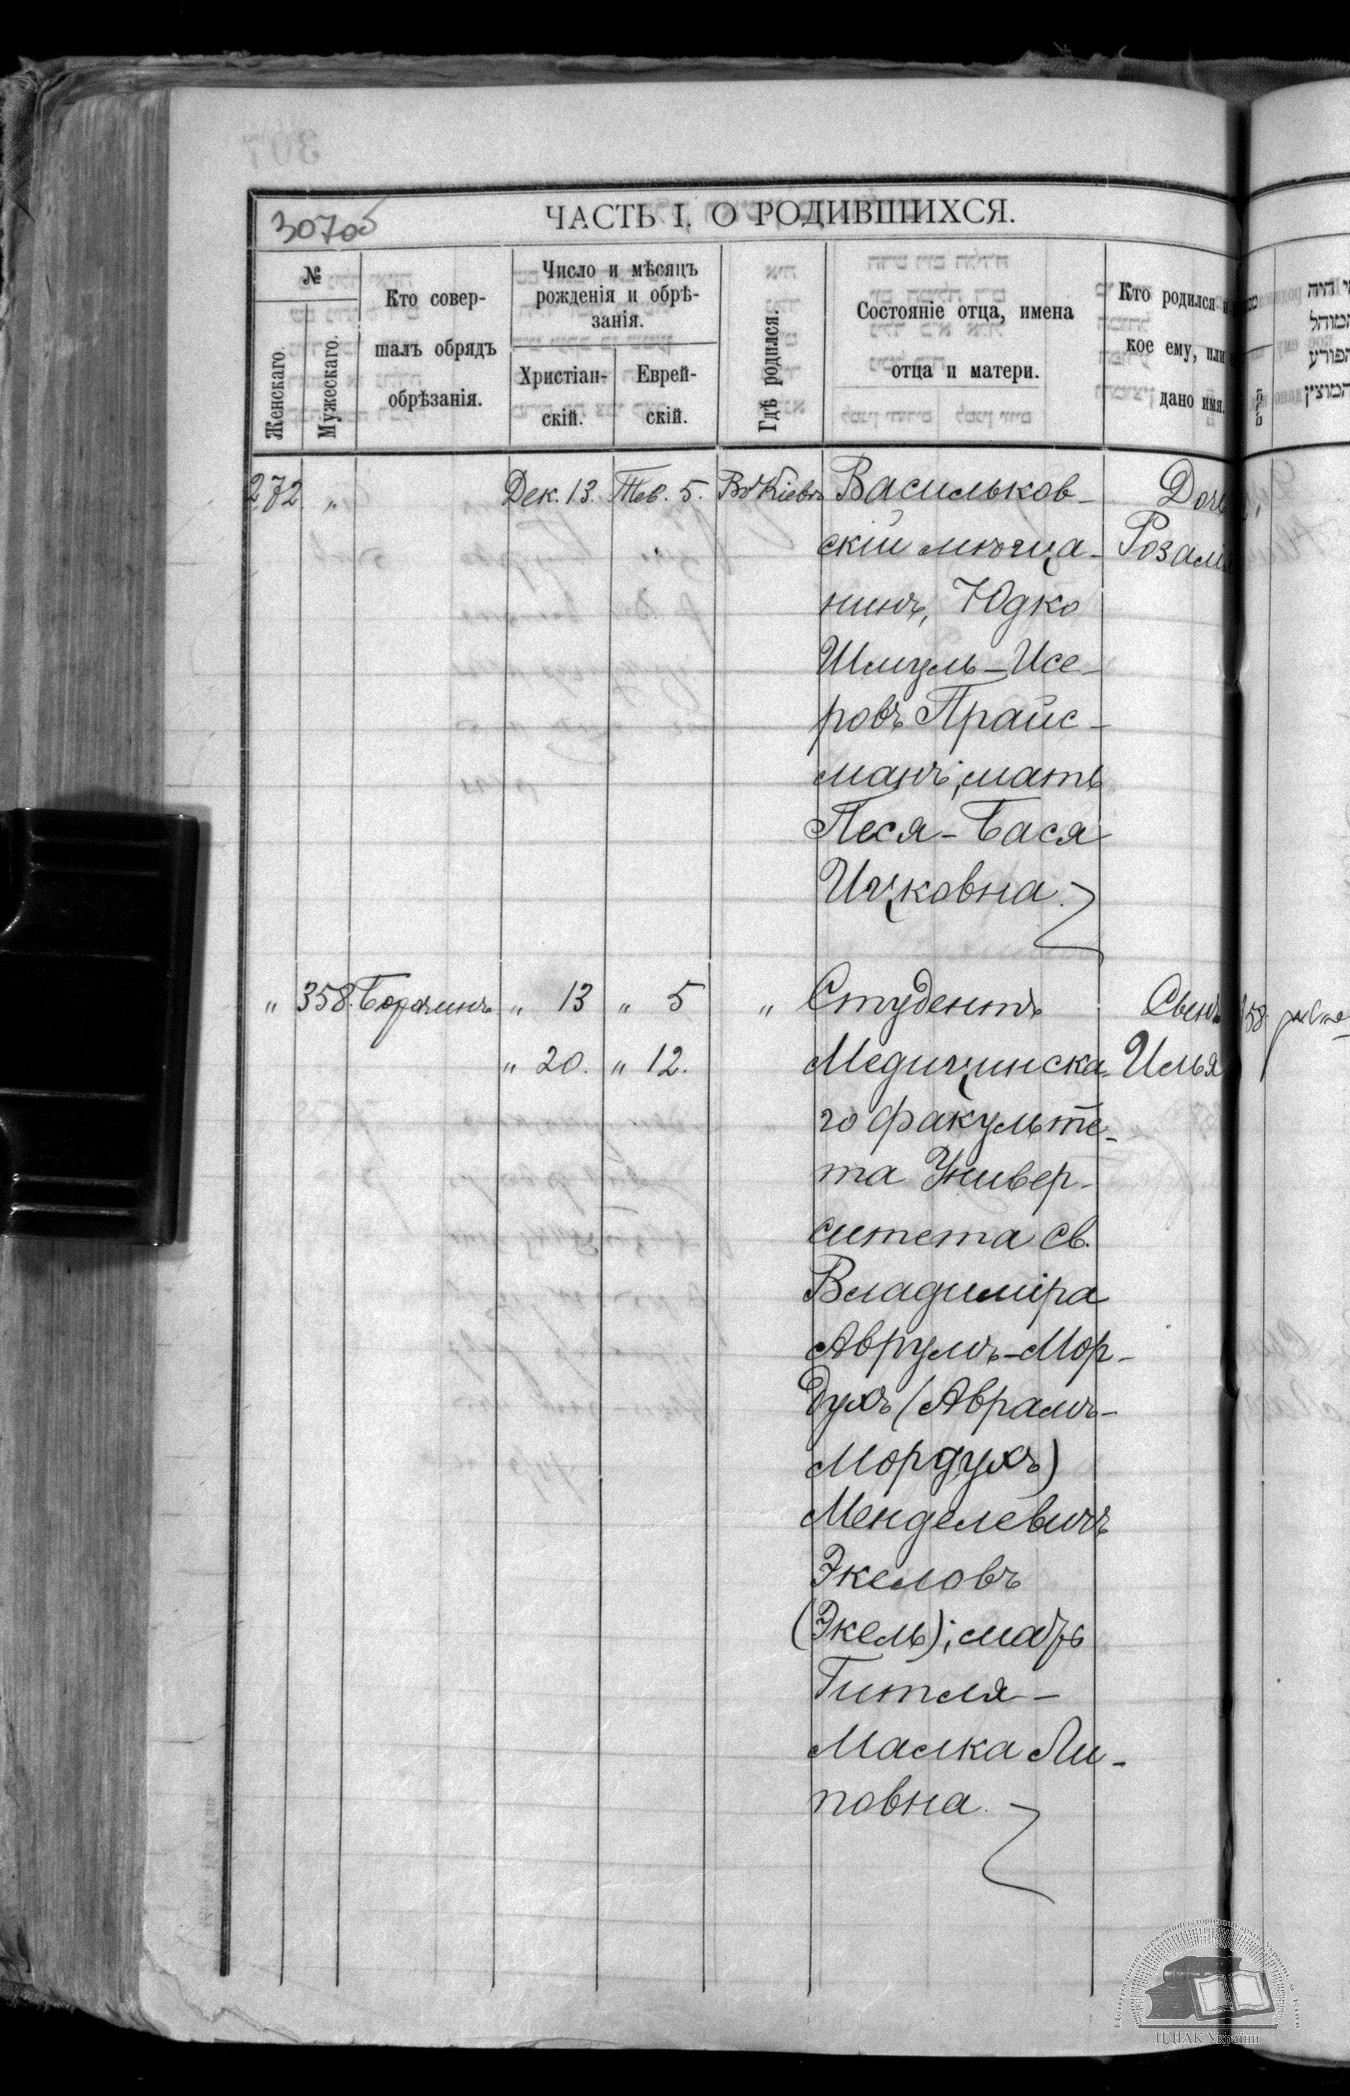 307об
ЧАСТЬ I. О РОДИВШИХСЯ.
№
Женскаго.
Мужескаго.
Кто совер-
шалъ обрядъ
обрѣзанія.
Число и мѣсяцъ
рожденія и обрѣ-
занія.
Христіан-
скій.
Еврей-
скій.
Гдѣ родился.
Состояніе отца, имена
отца и матери.
Кто родился и
кое ему, или
дано имя.
272 „ Дек. 13. Тев. 5. Въ Кіевѣ Васильков-
скій мѣща-
нинъ, Юдко
Шмуль-Исе-
ровъ Прайс-
манъ; мать
Песя-Бася
Ицковна.
Дочь
Розалі
„ 358. „ 13 „ 5 „ Студентъ
„ 20. „ 12. Медицинска-
го факульте-
та Универ-
ситета Св.
Владиміра
Аврумъ-Мор-
духъ (Аврамъ-
Мордухъ)
Менделевичъ
Экеловъ
(Экель); мать
Гитля-
Малка Ли-
повна.
Сынъ
Илья
היה
המוהל
הפורע
המוצץ
ЦДІАК України